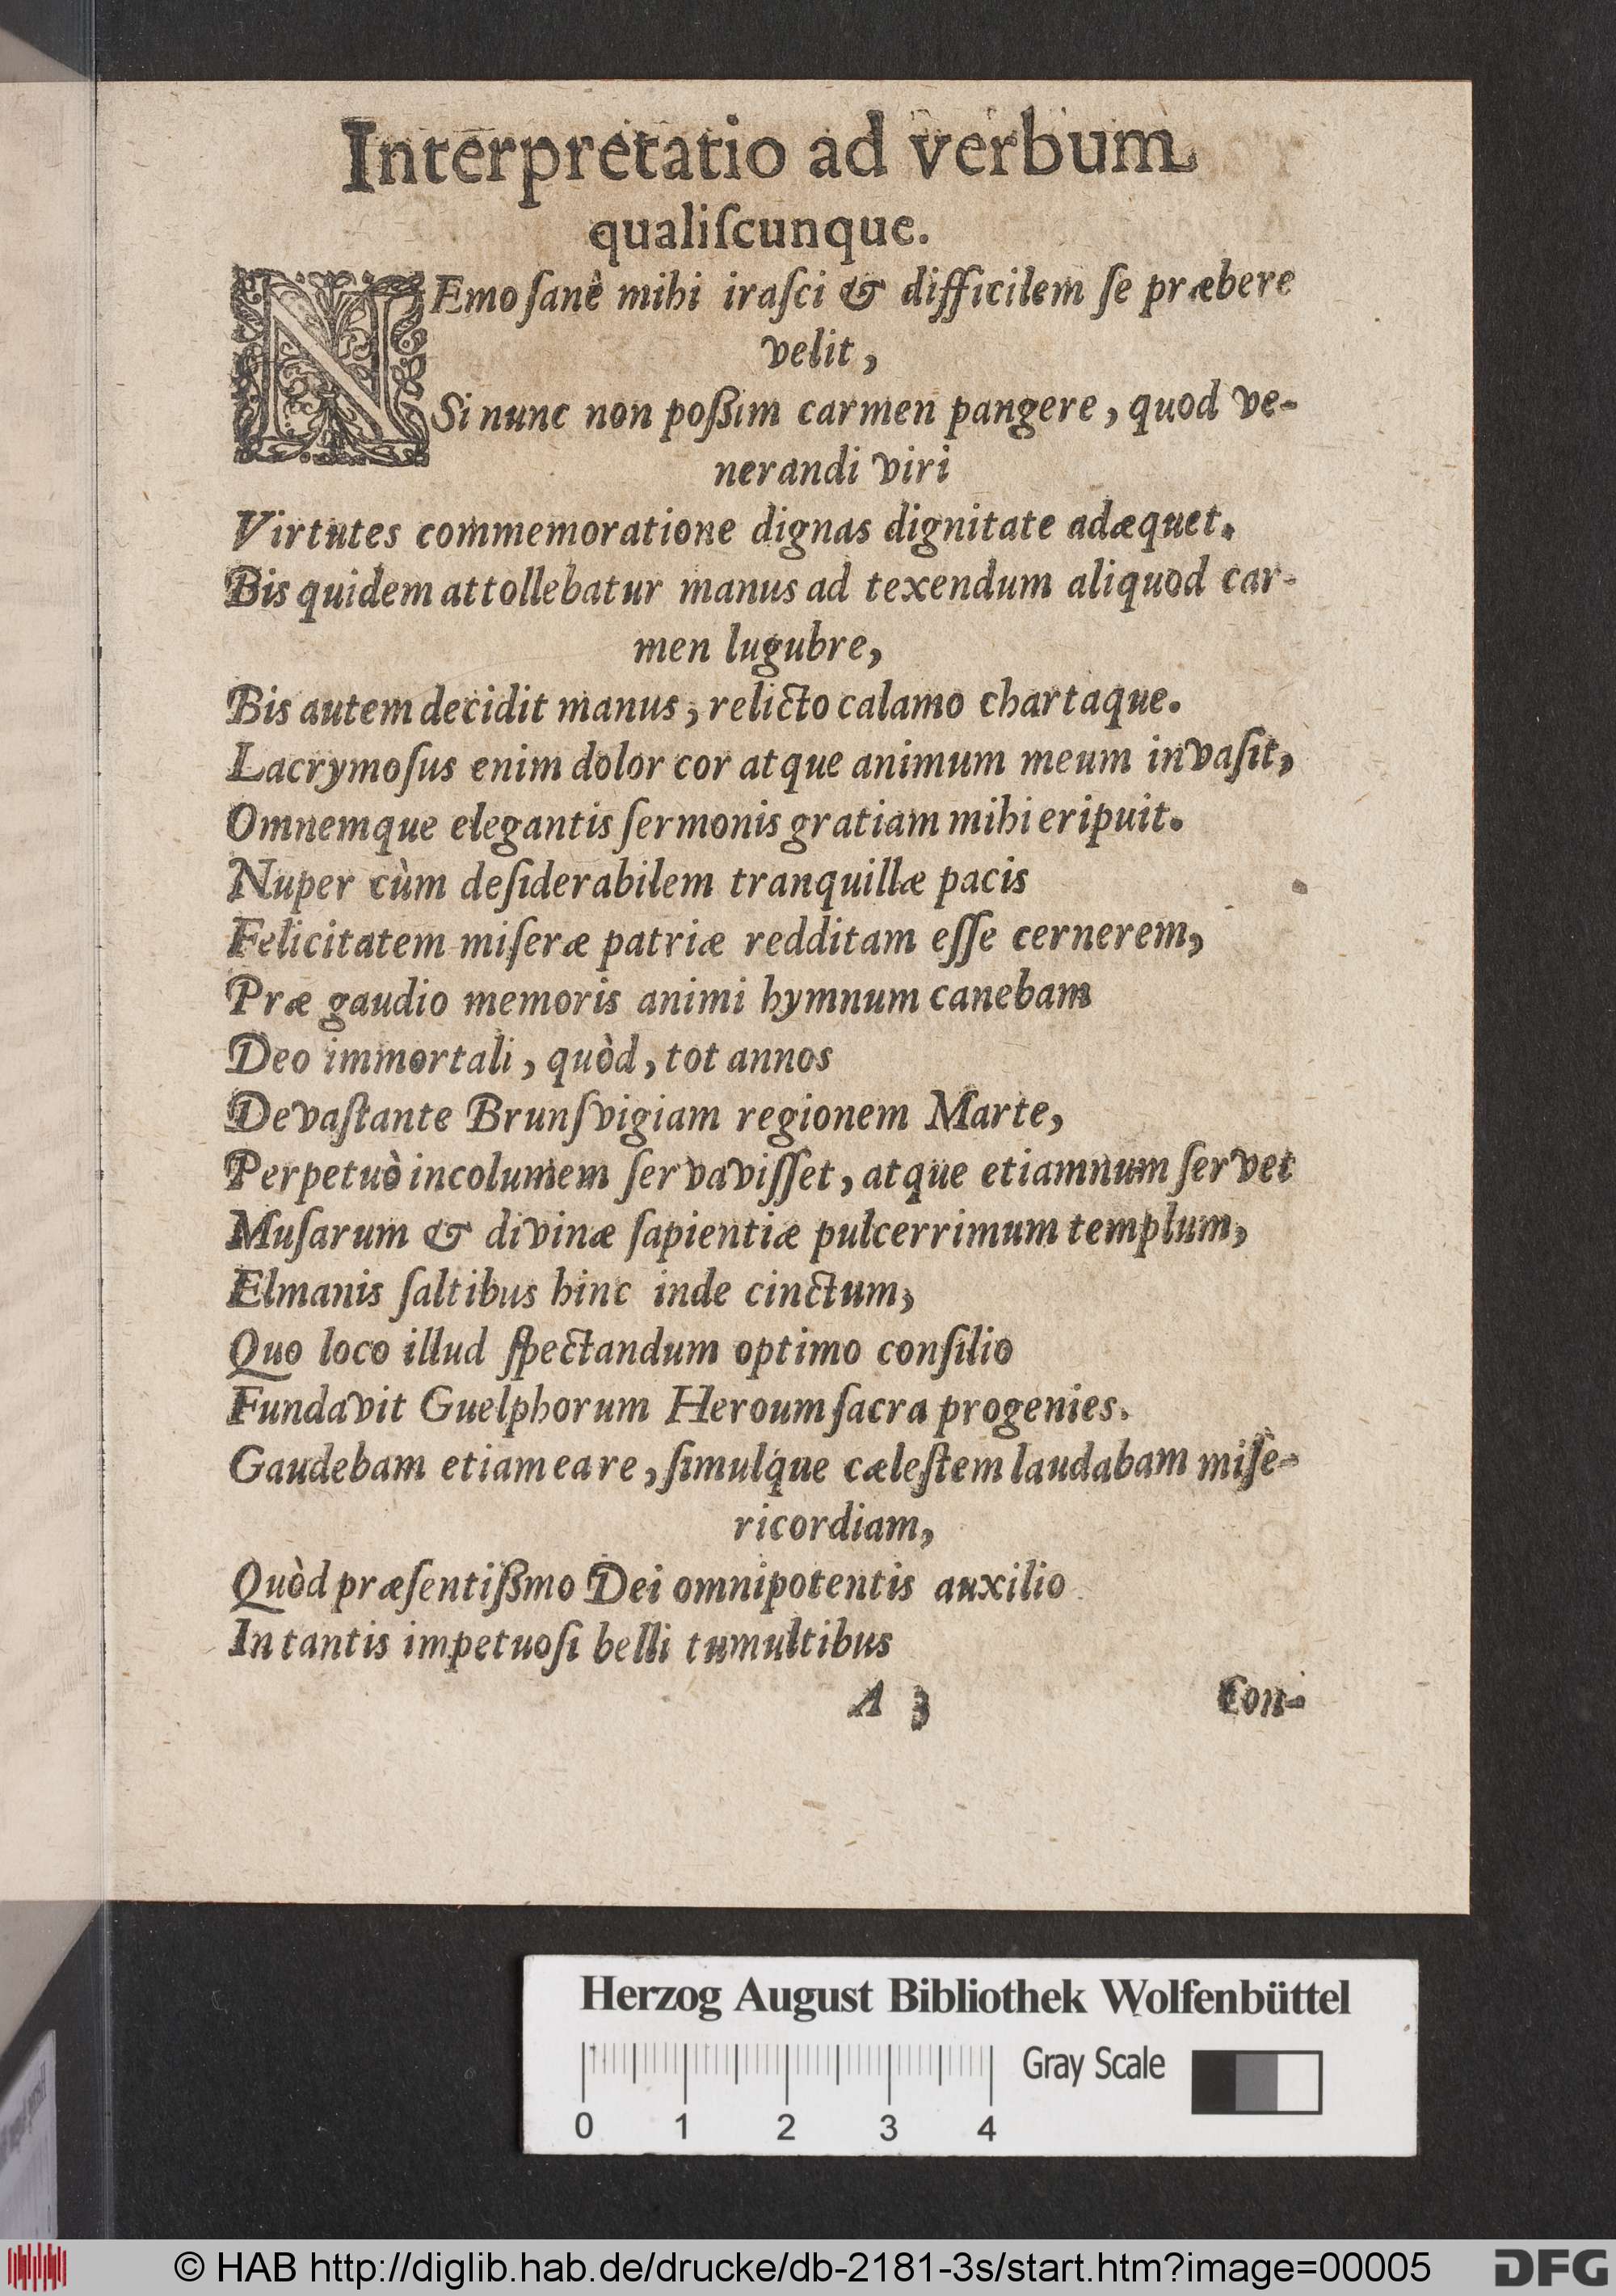 Interpretatio ad verbum
qualiſcunque.
NEmo ſanè mihi iraſci & difficilem ſe præbere
velit,
Si nunc non poßim carmen pangere, quod ve-
nerandi viri
Virtutes commemoratione dignas dignitate adæquet.
Bis quidem attollebatur manus ad texendum aliquod car-
men lugubre,
Bis autem decidit manus, relicto calamo chartaque.
Lacrymoſus enim dolor cor atque animum meum invaſit,
Omnemque elegantis ſermonis gratiam mihi eripuit.
Nuper cùm deſiderabilem tranquillæ pacis
Felicitatem miſeræ patriæ redditam eſſe cernerem,
Præ gaudio memoris animi hymnum canebam
Deo immortali, quòd, tot annos
Devaſtante Brunſvigiam regionem Marte,
Perpetuò incolumem ſervaviſſet, atque etiamnum ſervet
Muſarum & divinæ ſapientiæ pulcerrimum templum,
Elmanis ſaltibus hinc inde cinctum,
Quo loco illud ſpectandum optimo conſilio
Fundavit Guelphorum Heroum ſacra progenies.
Gaudebam etiam ea re, ſimulq́ue cæleſtem laudabam miſe-
ricordiam,
Quòd præſentißmo Dei omnipotentis auxilio
In tantis impetuoſi belli tumultibus
A 3 Con-
Herzog August Bibliothek Wolfenbüttel
Gray Scale
0 1 2 3 4
© HAB http://diglib.hab.de/drucke/db-2181-3s/start.htm?image=00005
DFG